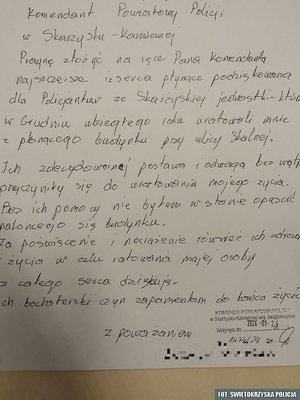 Komendant Powiatowy Policji
w Skarżysku-Kamiennej
Pragnę złożyć na ręce Pana Komendanta
najszczersze i z serca płynące podziękowania
dla Policjantów ze Skarżyskiej jednostki-któr
w Grudniu ubiegłego roku uratowali mnie
z płonącego budynku przy ulicy Skalnej.
Ich zdecydowana postawa i odwaga bez wątp
przyczyniły się do uratowania mojego życia.
Bez ich pomocy nie byłem w stanie opuścić
palącego się budynku.
Za poświęcenie i narażenie również ich zdrowia
i życia w celu ratowania mojej osoby
z całego serca dziękuję.
Ich bohaterski czyn zapamiętam do końca życia
z poważaniem
KOMENDA POWIATOWA POLICJI
w Skarżysku-Kamiennej, woj. świętokrzyskie
Wpłynęło dn.
FOT. ŚWIĘTOKRZYSKA POLICJA